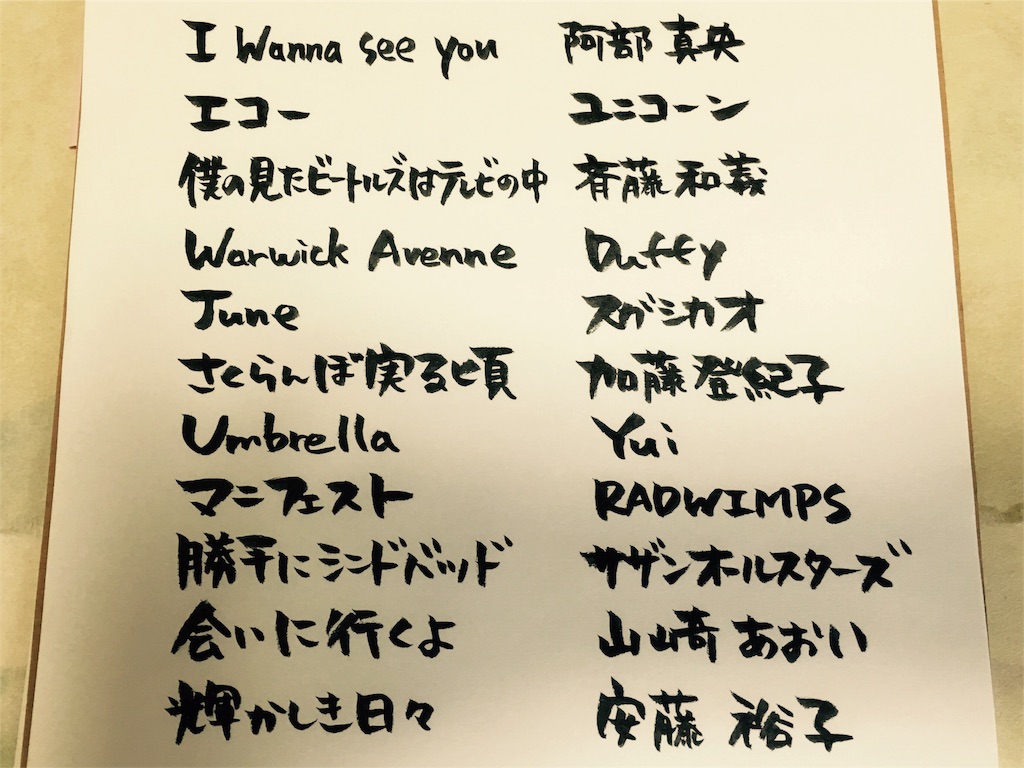 I Wanna see you 阿部真央
エコー ユニコーン
僕の見たビートルズはテレビの中 斉藤和義
Warwick Avenne Duffy
June スガシカオ
さくらんぼ実る頃 加藤登紀子
Umbrella Yui
マニフェスト RADWIMPS
勝手にシンドバッド サザンオールスターズ
会いに行くよ 山崎あおい
輝かしき日々 安藤裕子